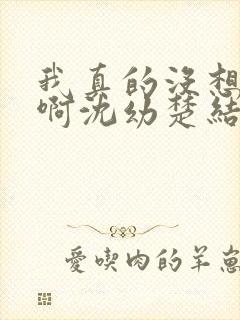 我真的没想
啊沈幼楚结
爱喫肉的羊崽